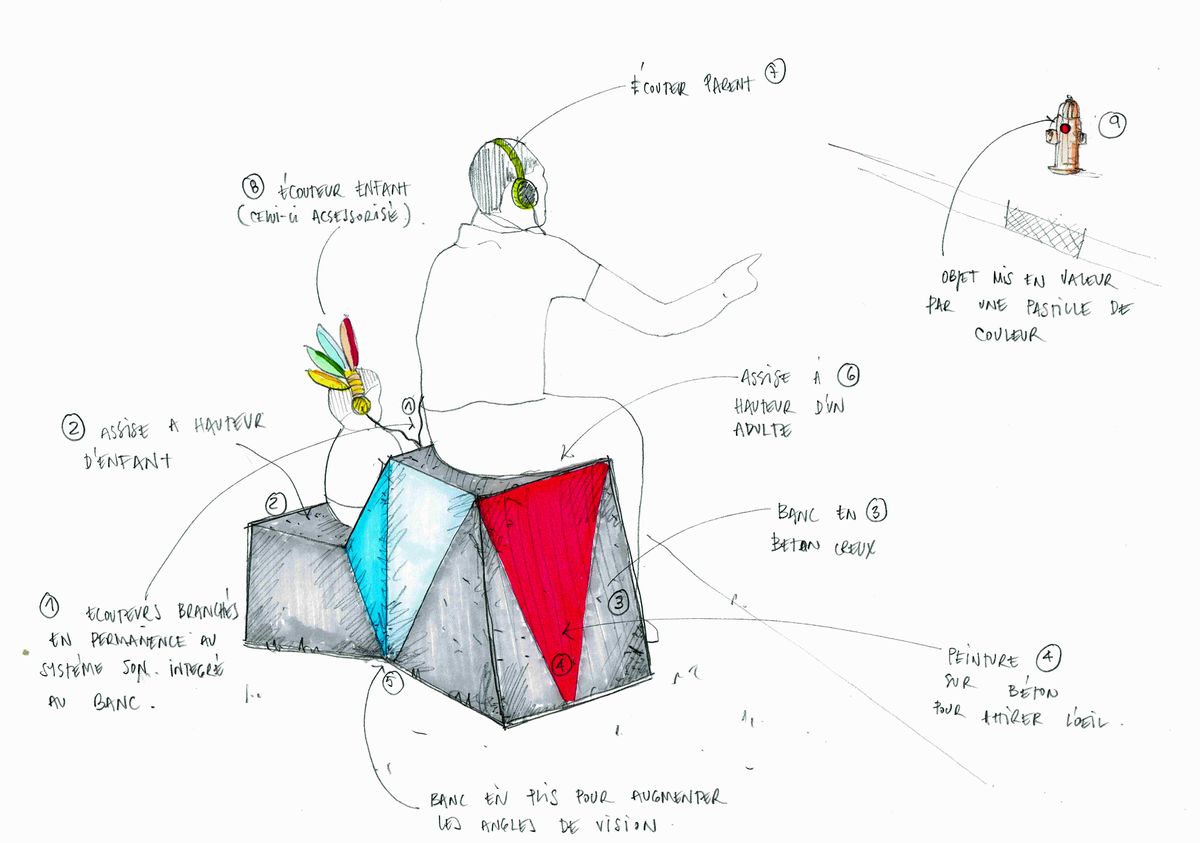 ÉCOUTER PARENT 7
9
8 ÉCOUTEUR ENFANT
(CELUI-CI ACSESSORISÉ).
OBJET MIS EN VALEUR
PAR UNE PASTILLE DE
COULEUR
ASSISE À 6
HAUTEUR D'UN
ADULTE
1
2 ASSISE A HAUTEUR
D'ENFANT
2
BANC EN 3
BÉTON CREUX
1 ECOUTEURS BRANCHÉS
EN PERMANENCE AU
SYSTÉME SON. INTEGRÉ
AU BANC.
3
4
5
PEINTURE 4
SUR BÉTON
POUR ATTIRER L'OEIL.
BANC EN PLIS POUR AUGMENTER
LES ANGLES DE VISION.